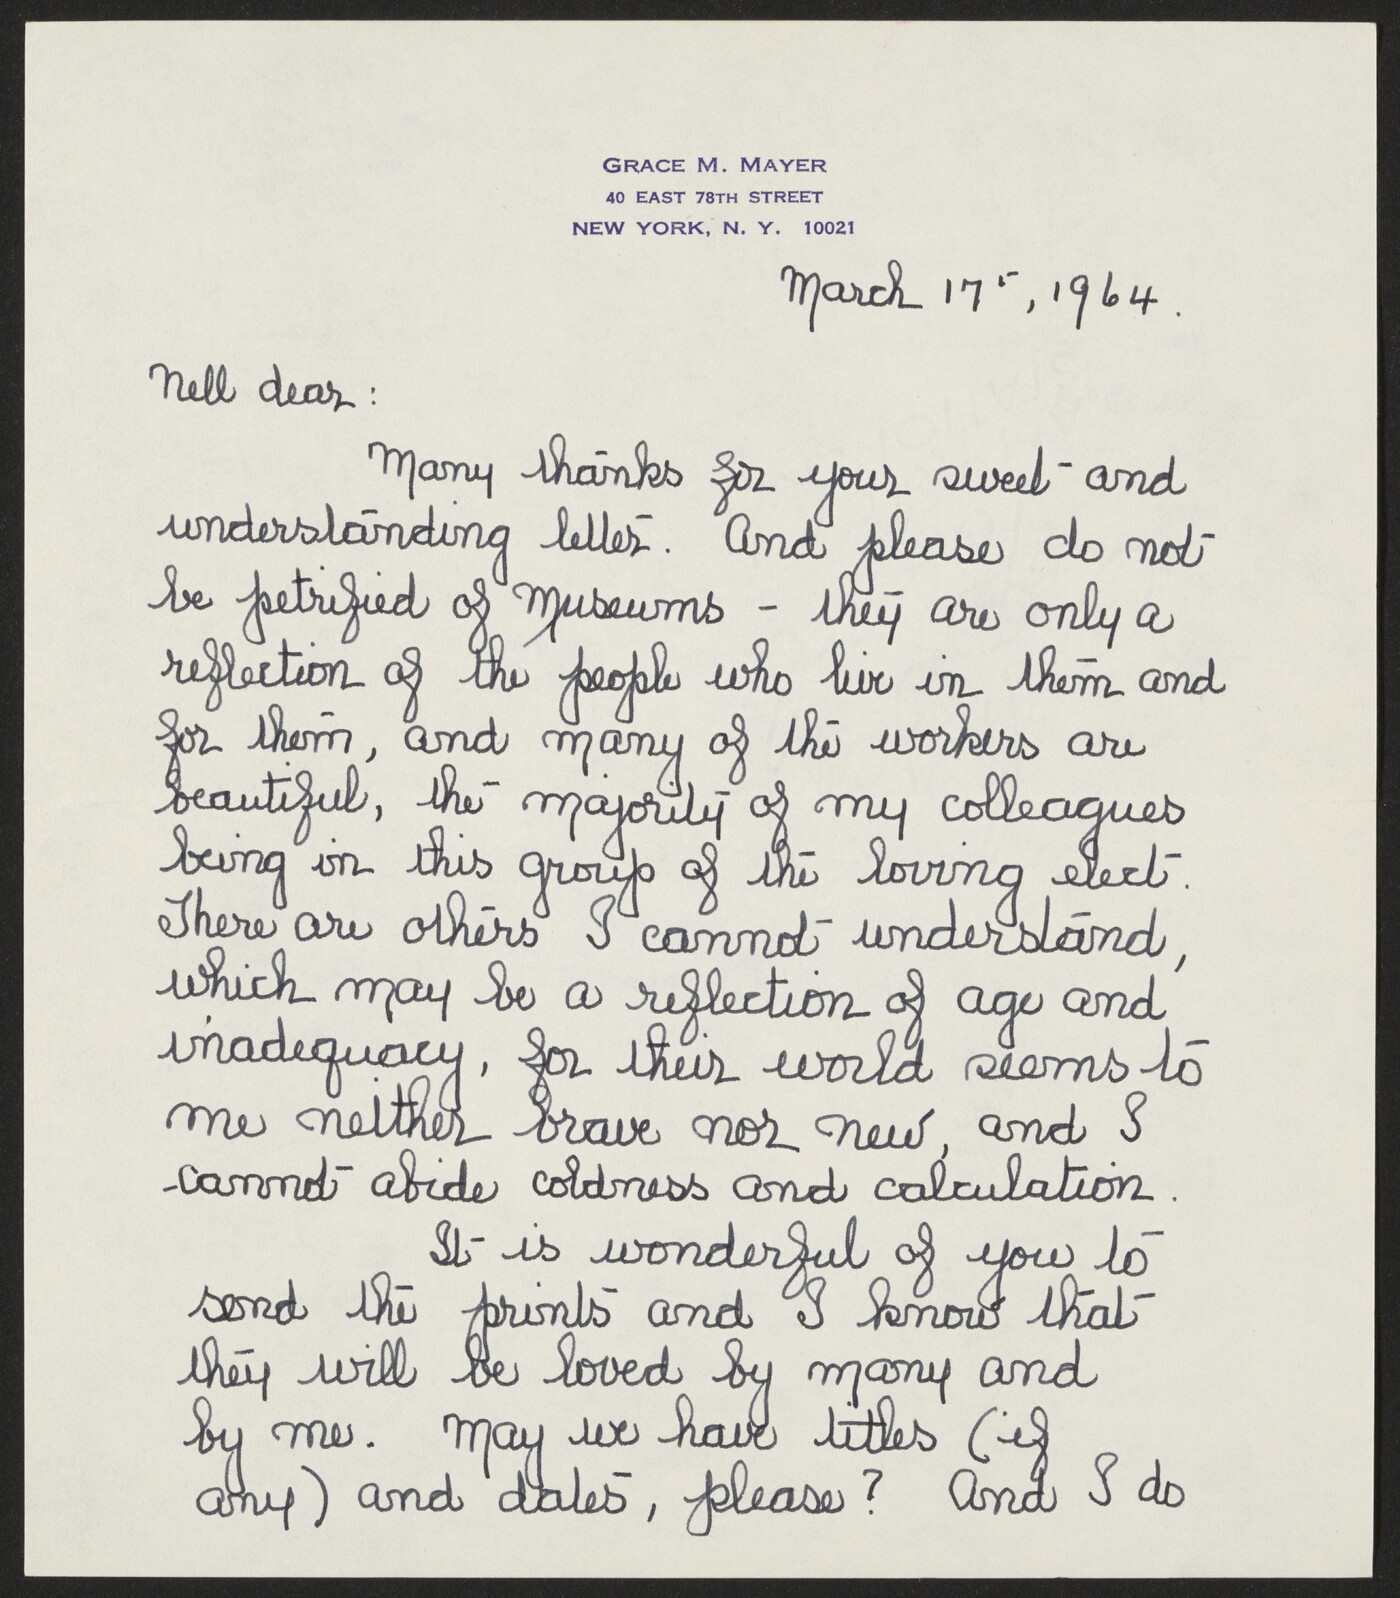 GRACE M. MAYER
40 EAST 78TH STREET
NEW YORK, N. Y. 10021
March 17th, 1964.
Nell dear:
Many thanks for your sweet and
understanding letter. And please do not
be petrified of Museums - they are only a
reflection of the people who live in them and
for them, and many of the workers are
beautiful, the majority of my colleagues
being in this group of the loving elect.
There are others I cannot understand,
which may be a reflection of age and
inadequacy, for their world seems to
me neither brave nor new, and I
cannot abide coldness and calculation.
It is wonderful of you to
send the prints and I know that
they will be loved by many and
by me. May we have titles (if
any) and dates, please? And I do